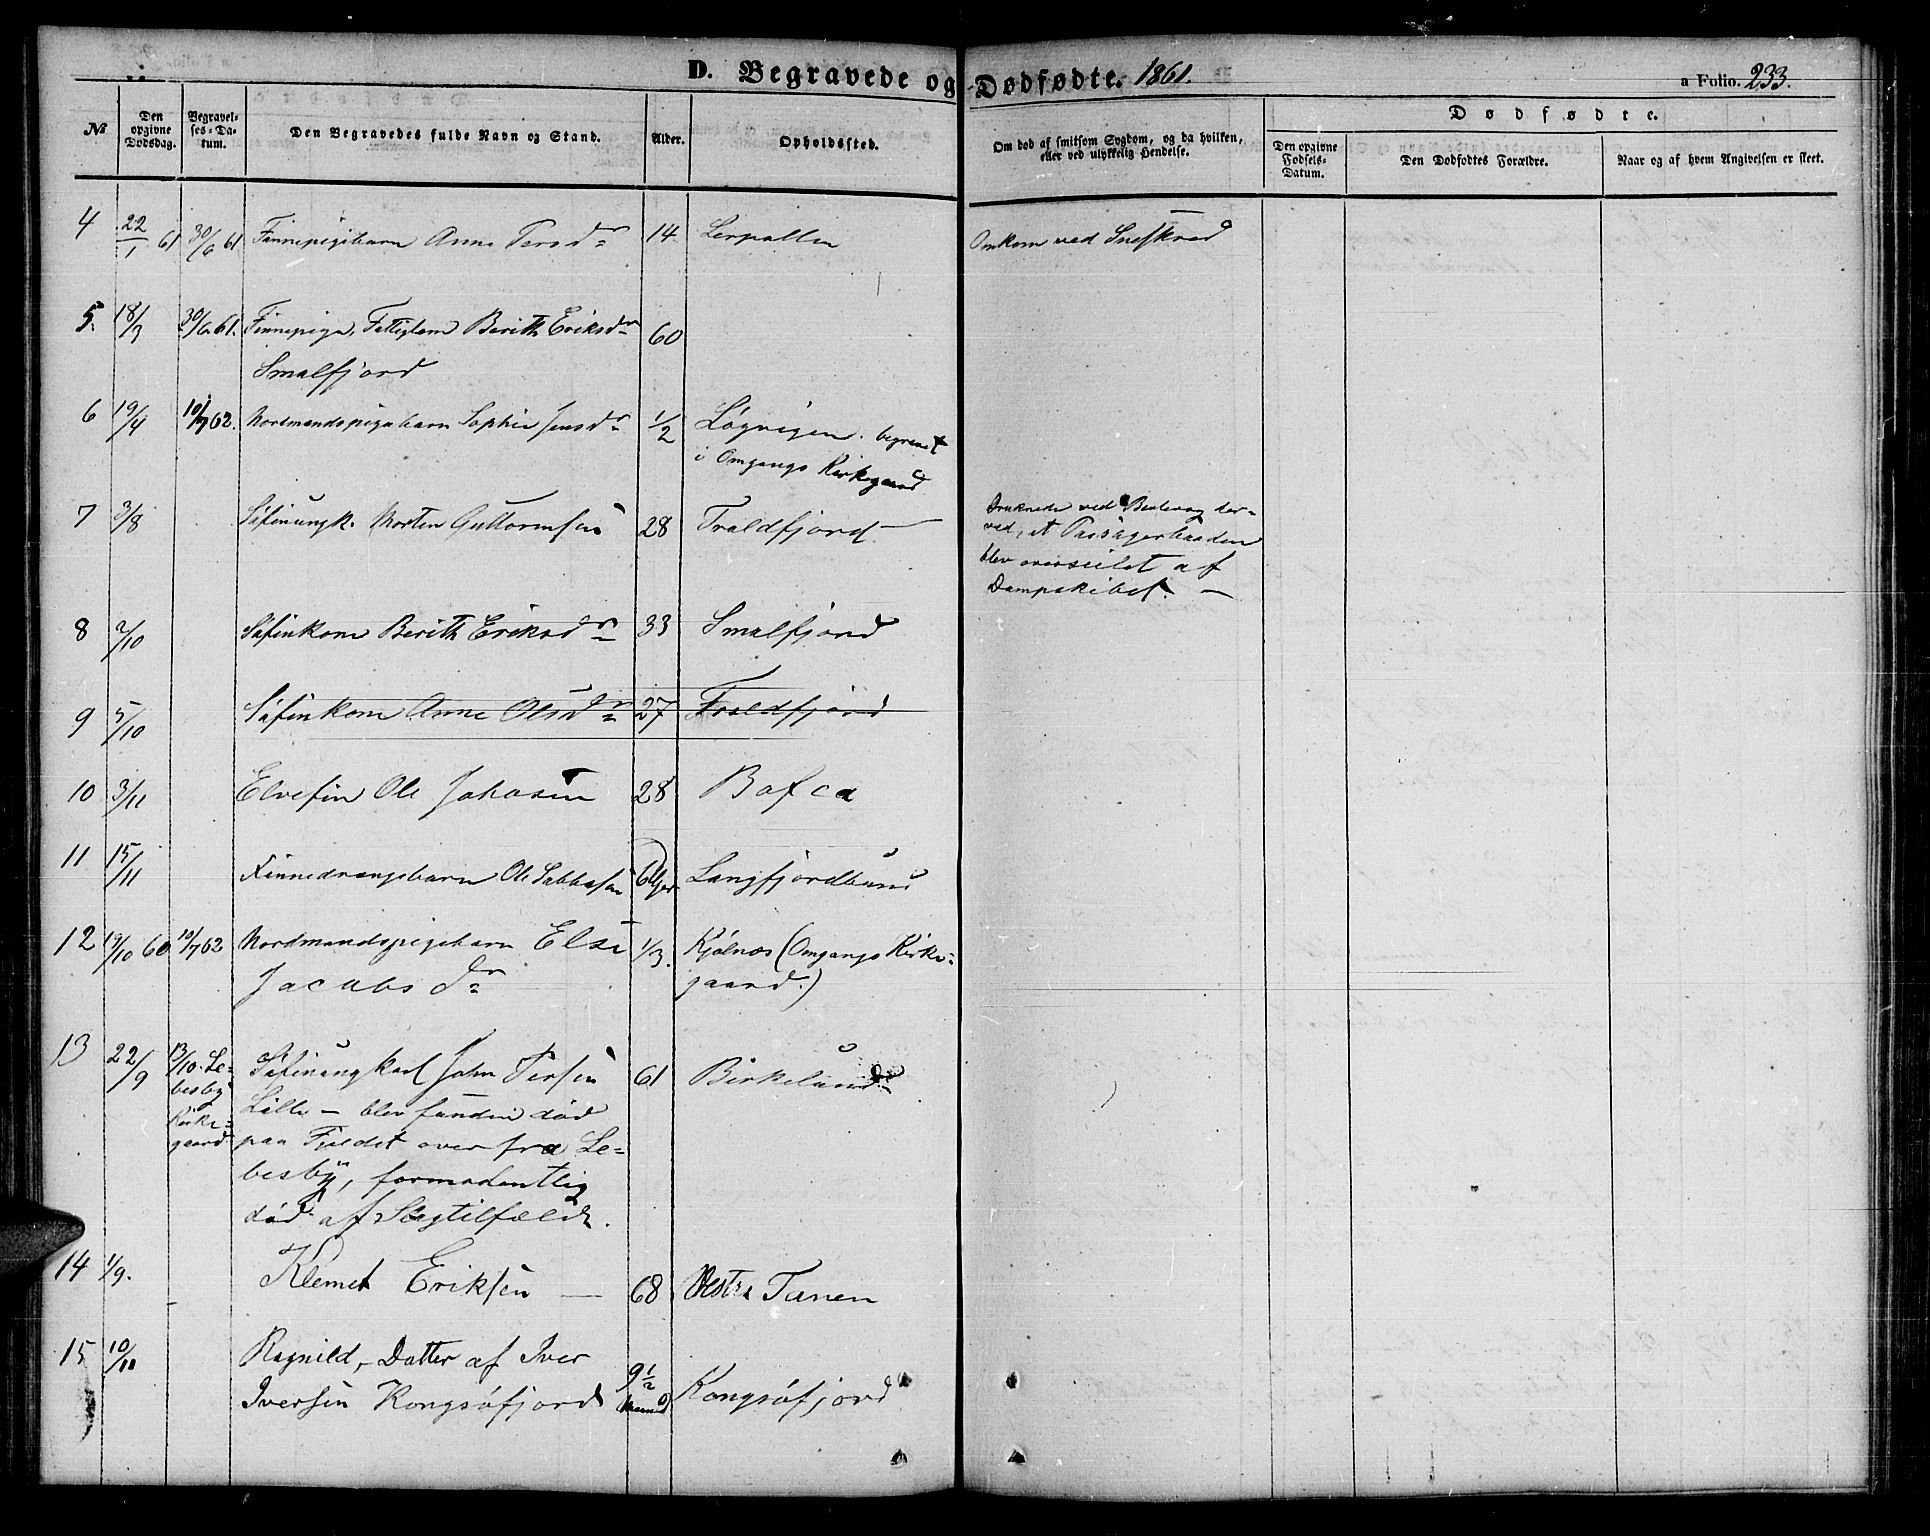 D. Begravede og Dødfødte. 1861.
a Folio. 233.
No
Den opgivne Dødsdag.
Begravelses-Datum.
Den Begravedes fulde Navn og Stand.
Alder.
Opholdssted.
Om død af smitsom Sygdom, og da hvilken, eller ved ulykkelig Hendelse.
Dødfødte.
Den opgivne Fødsels-Datum.
Den Dødfødtes Forældre.
Naar og af hvem Angivelsen er skeet.
4 22/1 61 30/6 61 Finnepigebarn Anne Persdr 14 Lerpollen Omkom ved Sneskred
5. 18/3 30/6 61. Finnepige, Fattiglem Berith Eriksdr 60
Smalfjord
6 19/4 10/7 62. Nordmandspigebarn Sophie Jensdr 1/2 Løgvigen. begravet
i Omgangs Kirkegaard
7 3/8 Søfinungk. Morten Guttormsen 28 Traldfjord — Druknede ved Berlevaag der=
ved, at Passagerbaaden
blev overseilet af
Dampskibet. —
8 2/10 Søfinkone Berith Eriksdr 33 Smalfjord
9 5/10 Søfinkone Anne Olsdr 27 Traldfjord
10 3/11 Elvefin Ole Johnsen 28 Bafca
11 15/11 Finnedrengebarn Ole Sabbasen 6 Langfjordbund
12 19/10 60 10/7 62 Nordmandspigebarn Else 1/3. Kjølnæs (Omgangs Kirke=
Jacobsdr gaard.)
13 22/9 13/10. Le=
besby
Kirke=
gaard
Søfinungkarl John Persen 61 Birkelund
Lille — blev funden død
paa Fjeldet over fra Le=
besby, formodentlig
død af Slagtilfælde.
14 1/9. Klemet Eriksen — 68 Vestre Tanen
15 10/11 Ragnild, Datter af Iver
Iversen Kongsøfjord 9 1/2 Kongsøfjord